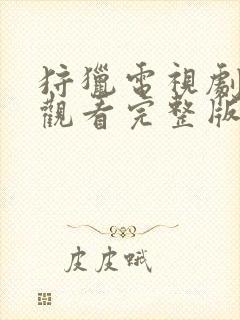 狩獵電視劇
觀看完整版
皮皮哦